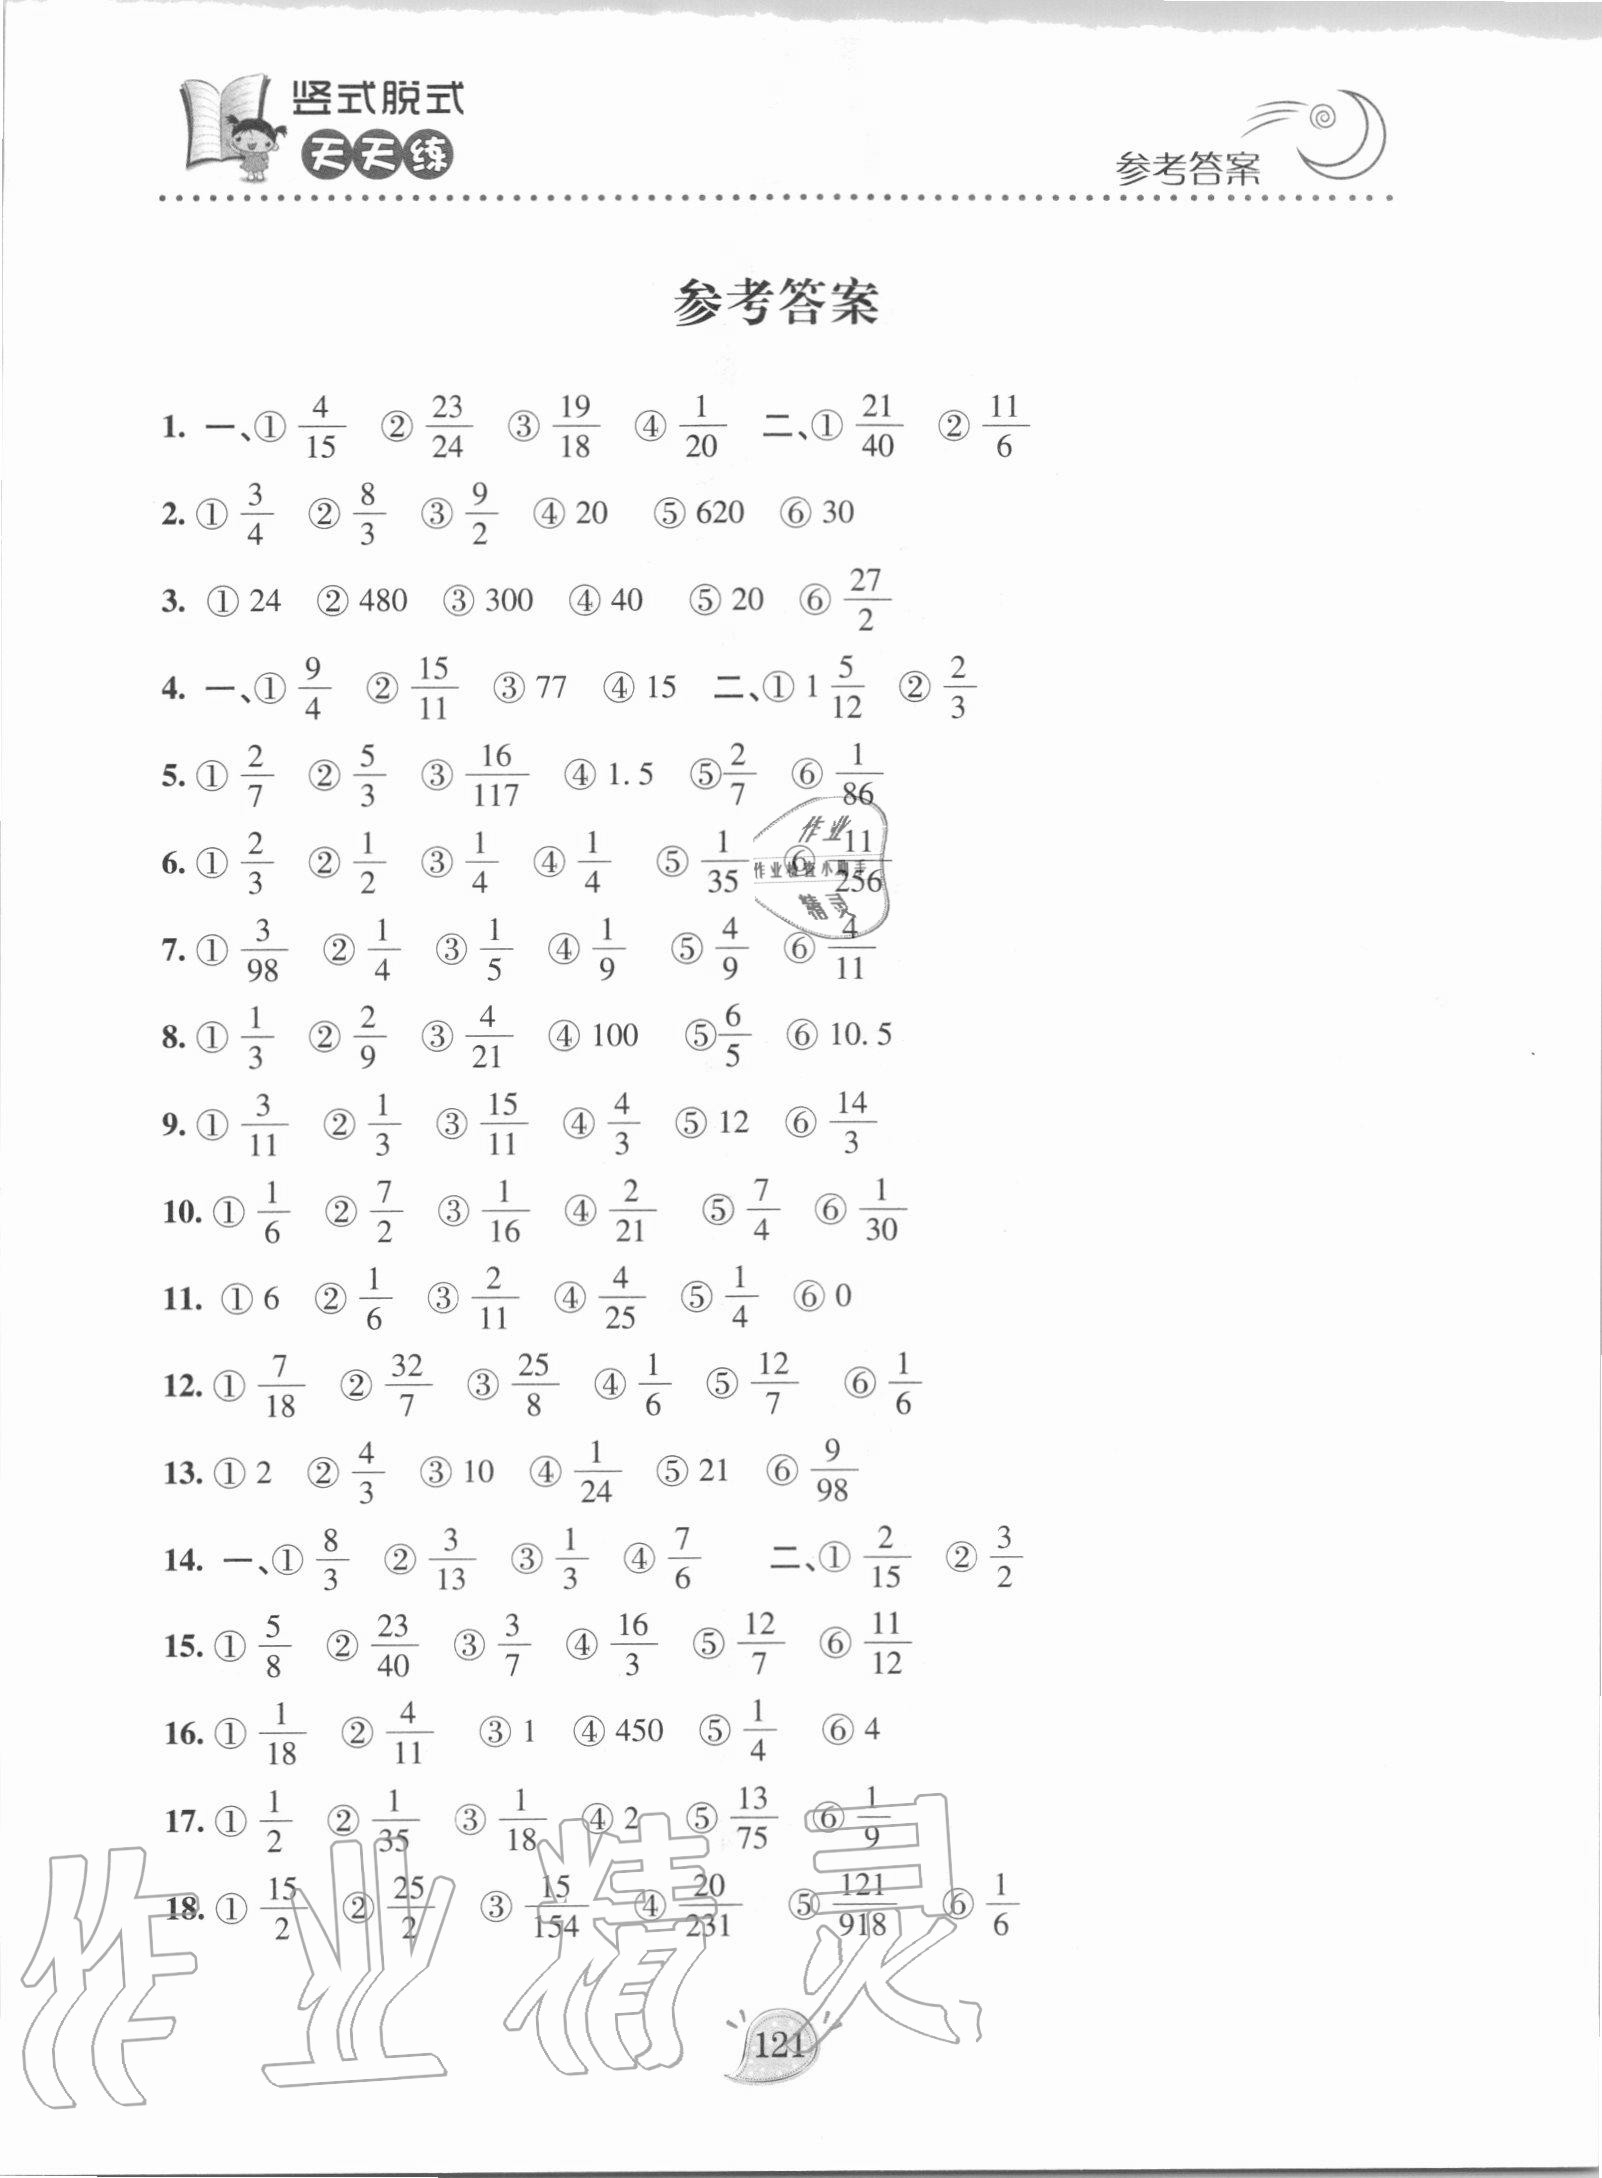 竖式脱式
天天练
参考答案
参考答案
1. 一、① 4/15 ② 23/24 ③ 19/18 ④ 1/20 二、① 21/40 ② 11/6
2. ① 3/4 ② 8/3 ③ 9/2 ④ 20 ⑤ 620 ⑥ 30
3. ① 24 ② 480 ③ 300 ④ 40 ⑤ 20 ⑥ 27/2
4. 一、① 9/4 ② 15/11 ③ 77 ④ 15 二、① 1 5/12 ② 2/3
5. ① 2/7 ② 5/3 ③ 16/117 ④ 1.5 ⑤ 2/7 ⑥ 1/86
6. ① 2/3 ② 1/2 ③ 1/4 ④ 1/4 ⑤ 1/35 ⑥ 11/256
作业
作业检查小助手
精灵
7. ① 3/98 ② 1/4 ③ 1/5 ④ 1/9 ⑤ 4/9 ⑥ 4/11
8. ① 1/3 ② 2/9 ③ 4/21 ④ 100 ⑤ 6/5 ⑥ 10.5
9. ① 3/11 ② 1/3 ③ 15/11 ④ 4/3 ⑤ 12 ⑥ 14/3
10. ① 1/6 ② 7/2 ③ 1/16 ④ 2/21 ⑤ 7/4 ⑥ 1/30
11. ① 6 ② 1/6 ③ 2/11 ④ 4/25 ⑤ 1/4 ⑥ 0
12. ① 7/18 ② 32/7 ③ 25/8 ④ 1/6 ⑤ 12/7 ⑥ 1/6
13. ① 2 ② 4/3 ③ 10 ④ 1/24 ⑤ 21 ⑥ 9/98
14. 一、① 8/3 ② 3/13 ③ 1/3 ④ 7/6 二、① 2/15 ② 3/2
15. ① 5/8 ② 23/40 ③ 3/7 ④ 16/3 ⑤ 12/7 ⑥ 11/12
16. ① 1/18 ② 4/11 ③ 1 ④ 450 ⑤ 1/4 ⑥ 4
17. ① 1/2 ② 1/35 ③ 1/18 ④ 2 ⑤ 13/75 ⑥ 1/9
18. ① 15/2 ② 25/2 ③ 15/154 ④ 20/231 ⑤ 121/918 ⑥ 1/6
作业精灵
121